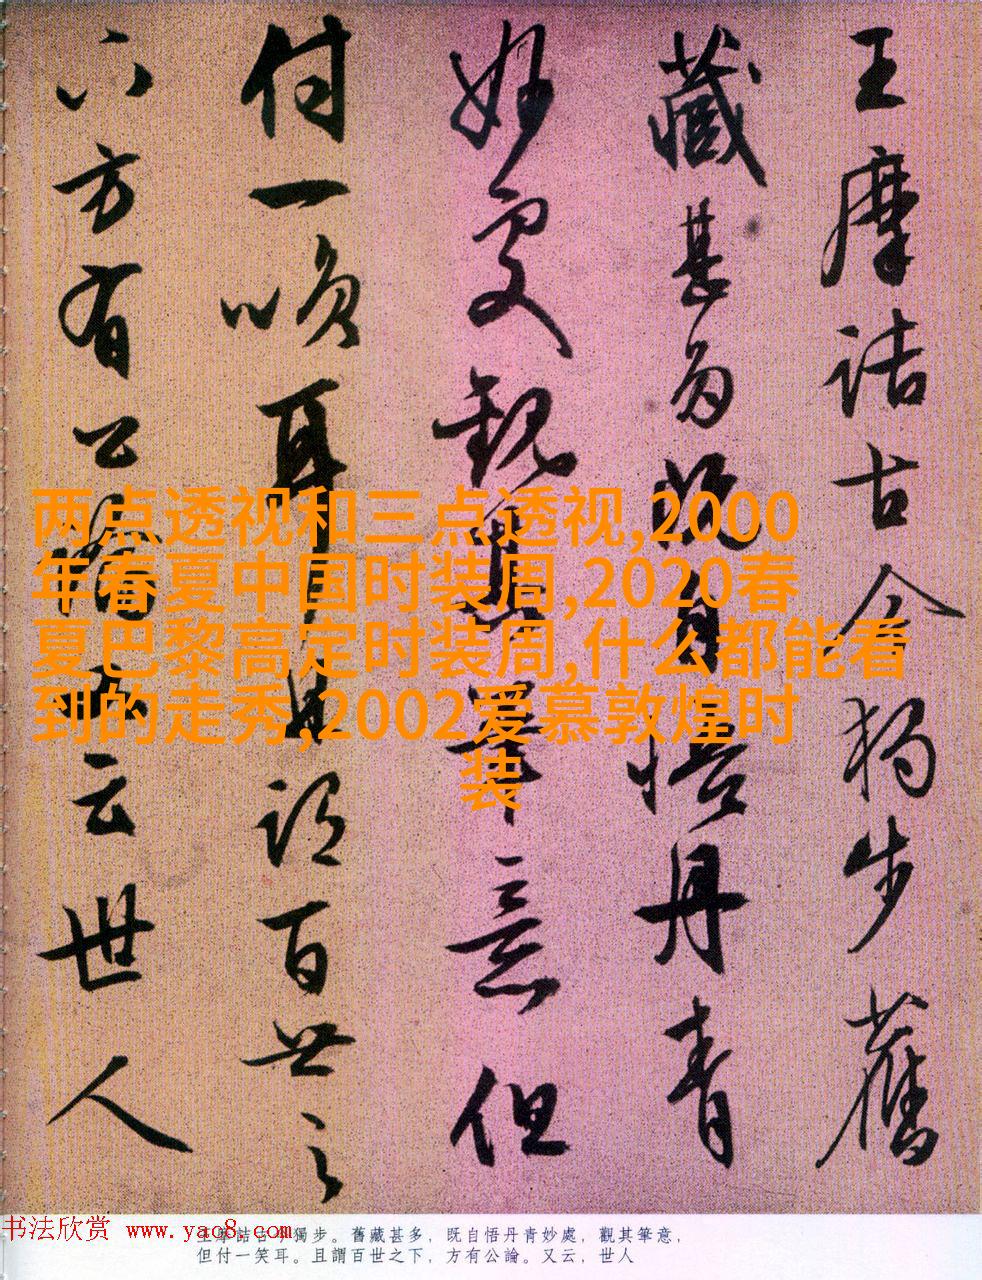 王摩詰古今獨步舊
藏甚多既自悟丹青
妙處觀其筆意但
付一咲耳且謂百世之
下方有公論又云世人
两点透视和三点透视,2000
年春夏中国时装周,2020春
夏巴黎高定时装周,什么都能看
到的走秀,2002爱慕敦煌时
装
书法欣赏 www.yac8.com
王摩詰古今獨步。舊藏甚多,既自悟丹青妙處,觀其筆意,
但付一笑耳。且謂百世之下,方有公論。又云,世人